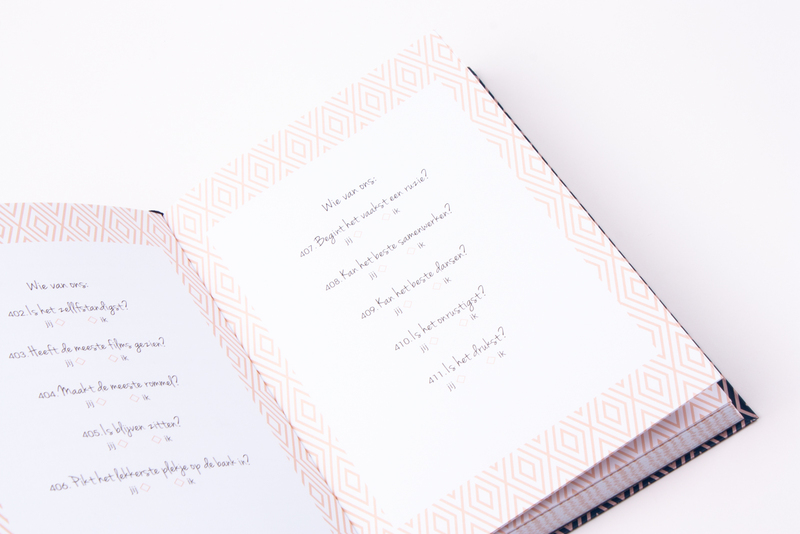 Wie van ons:
402. Is het zelfstandigst?
jij ik
403. Heeft de meeste films gezien?
jij ik
404. Maakt de meeste rommel?
jij ik
405. Is blijven zitten?
jij ik
406. Pikt het lekkerste plekje op de bank in?
jij ik
Wie van ons:
407. Begint het vaakst een ruzie?
jij ik
408. Kan het beste samenwerken?
jij ik
409. Kan het beste dansen?
jij ik
410. Is het onrustigst?
jij ik
411. Is het drukst?
jij ik